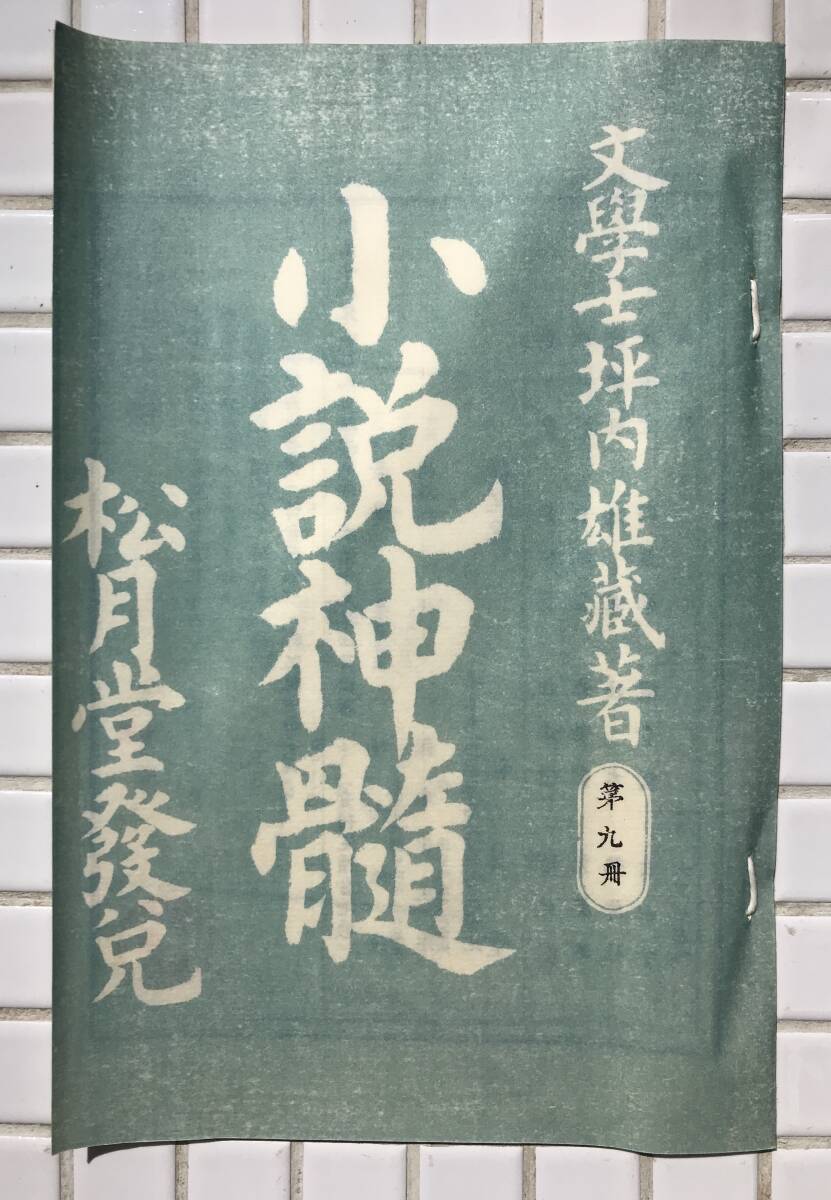 文學士坪内雄藏著
第九冊
小説神髓
松月堂發兌